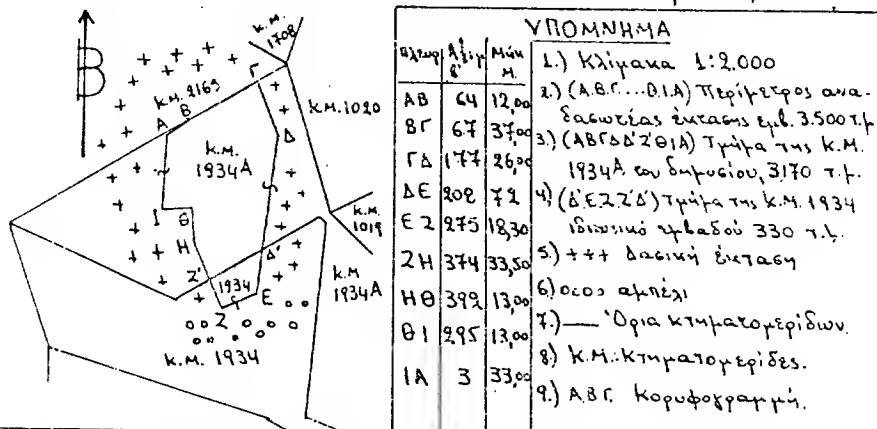 Β
Κ.Μ. 2169
Κ.Μ. 1708
Κ.Μ. 1020
Α Β
Γ
Κ.Μ.
1934Α
Δ
Ι
Θ
Η
Κ.Μ.
1019
Ζ'
Δ'
1934
Ε
Κ.Μ
1934Α
Ζ
Κ.Μ. 1934
ΥΠΟΜΝΗΜΑ
Πλευρ Αζιμ Μήκ
β' Μ.
ΑΒ 64 12,00
ΒΓ 67 37,00
ΓΔ 177 26,00
ΔΕ 202 72
ΕΖ 275 18,30
ΖΗ 374 33,50
ΗΘ 392 13,00
ΘΙ 295 13,00
ΙΑ 3 33,00
1.) Κλίμακα 1:2.000
2.) (Α.Β.Γ....Θ.Ι.Α) Περίμετρος ανα-
δασωτέας έκτασης εμβ. 3.500 τ.μ
3.) (ΑΒΓΔΔ'Ζ'ΘΙΑ) Τμήμα της Κ.Μ.
1934Α του δημοσίου, 3170 τ.μ.
4.) (Δ'ΕΖΖ'Δ') Τμήμα της Κ.Μ. 1934
ιδιωτικό εμβαδού 330 τ.μ.
5.) +++ Δασική έκταση
6.) οοοο αμπέλι
7.) — Όρια κτηματομερίδων.
8.) Κ.Μ.: Κτηματομερίδες.
9.) Α.Β.Γ. Κορυφογραμμή.